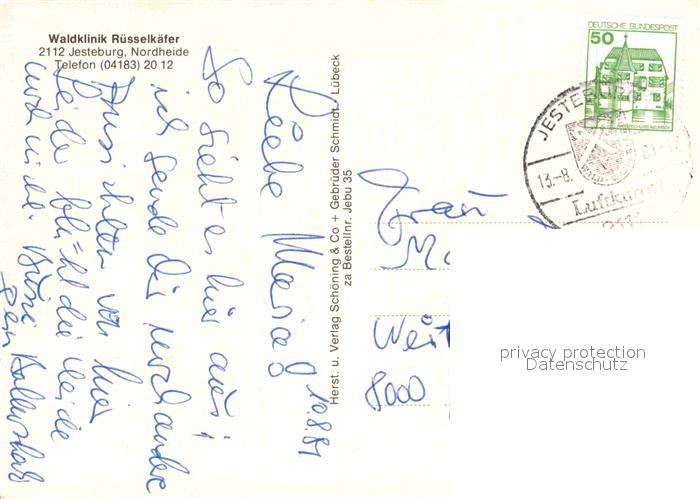 Waldklinik Rüsselkäfer
2112 Jesteburg, Nordheide
Telefon (04183) 20 12
10.8.81
Liebe Maria!
So sieht es hier aus;
ich sende dir noch andere
Ansichten von hier
Leider blüht die Heide
noch nicht.
Herst. u. Verlag Schöning & Co + Gebrüder Schmidt, Lübeck
za Bestellnr. Jebu 35
DEUTSCHE BUNDESPOST
50
JESTEBURG
13.-8.
Luftkurort
Frau
8000
privacy protection
Datenschutz